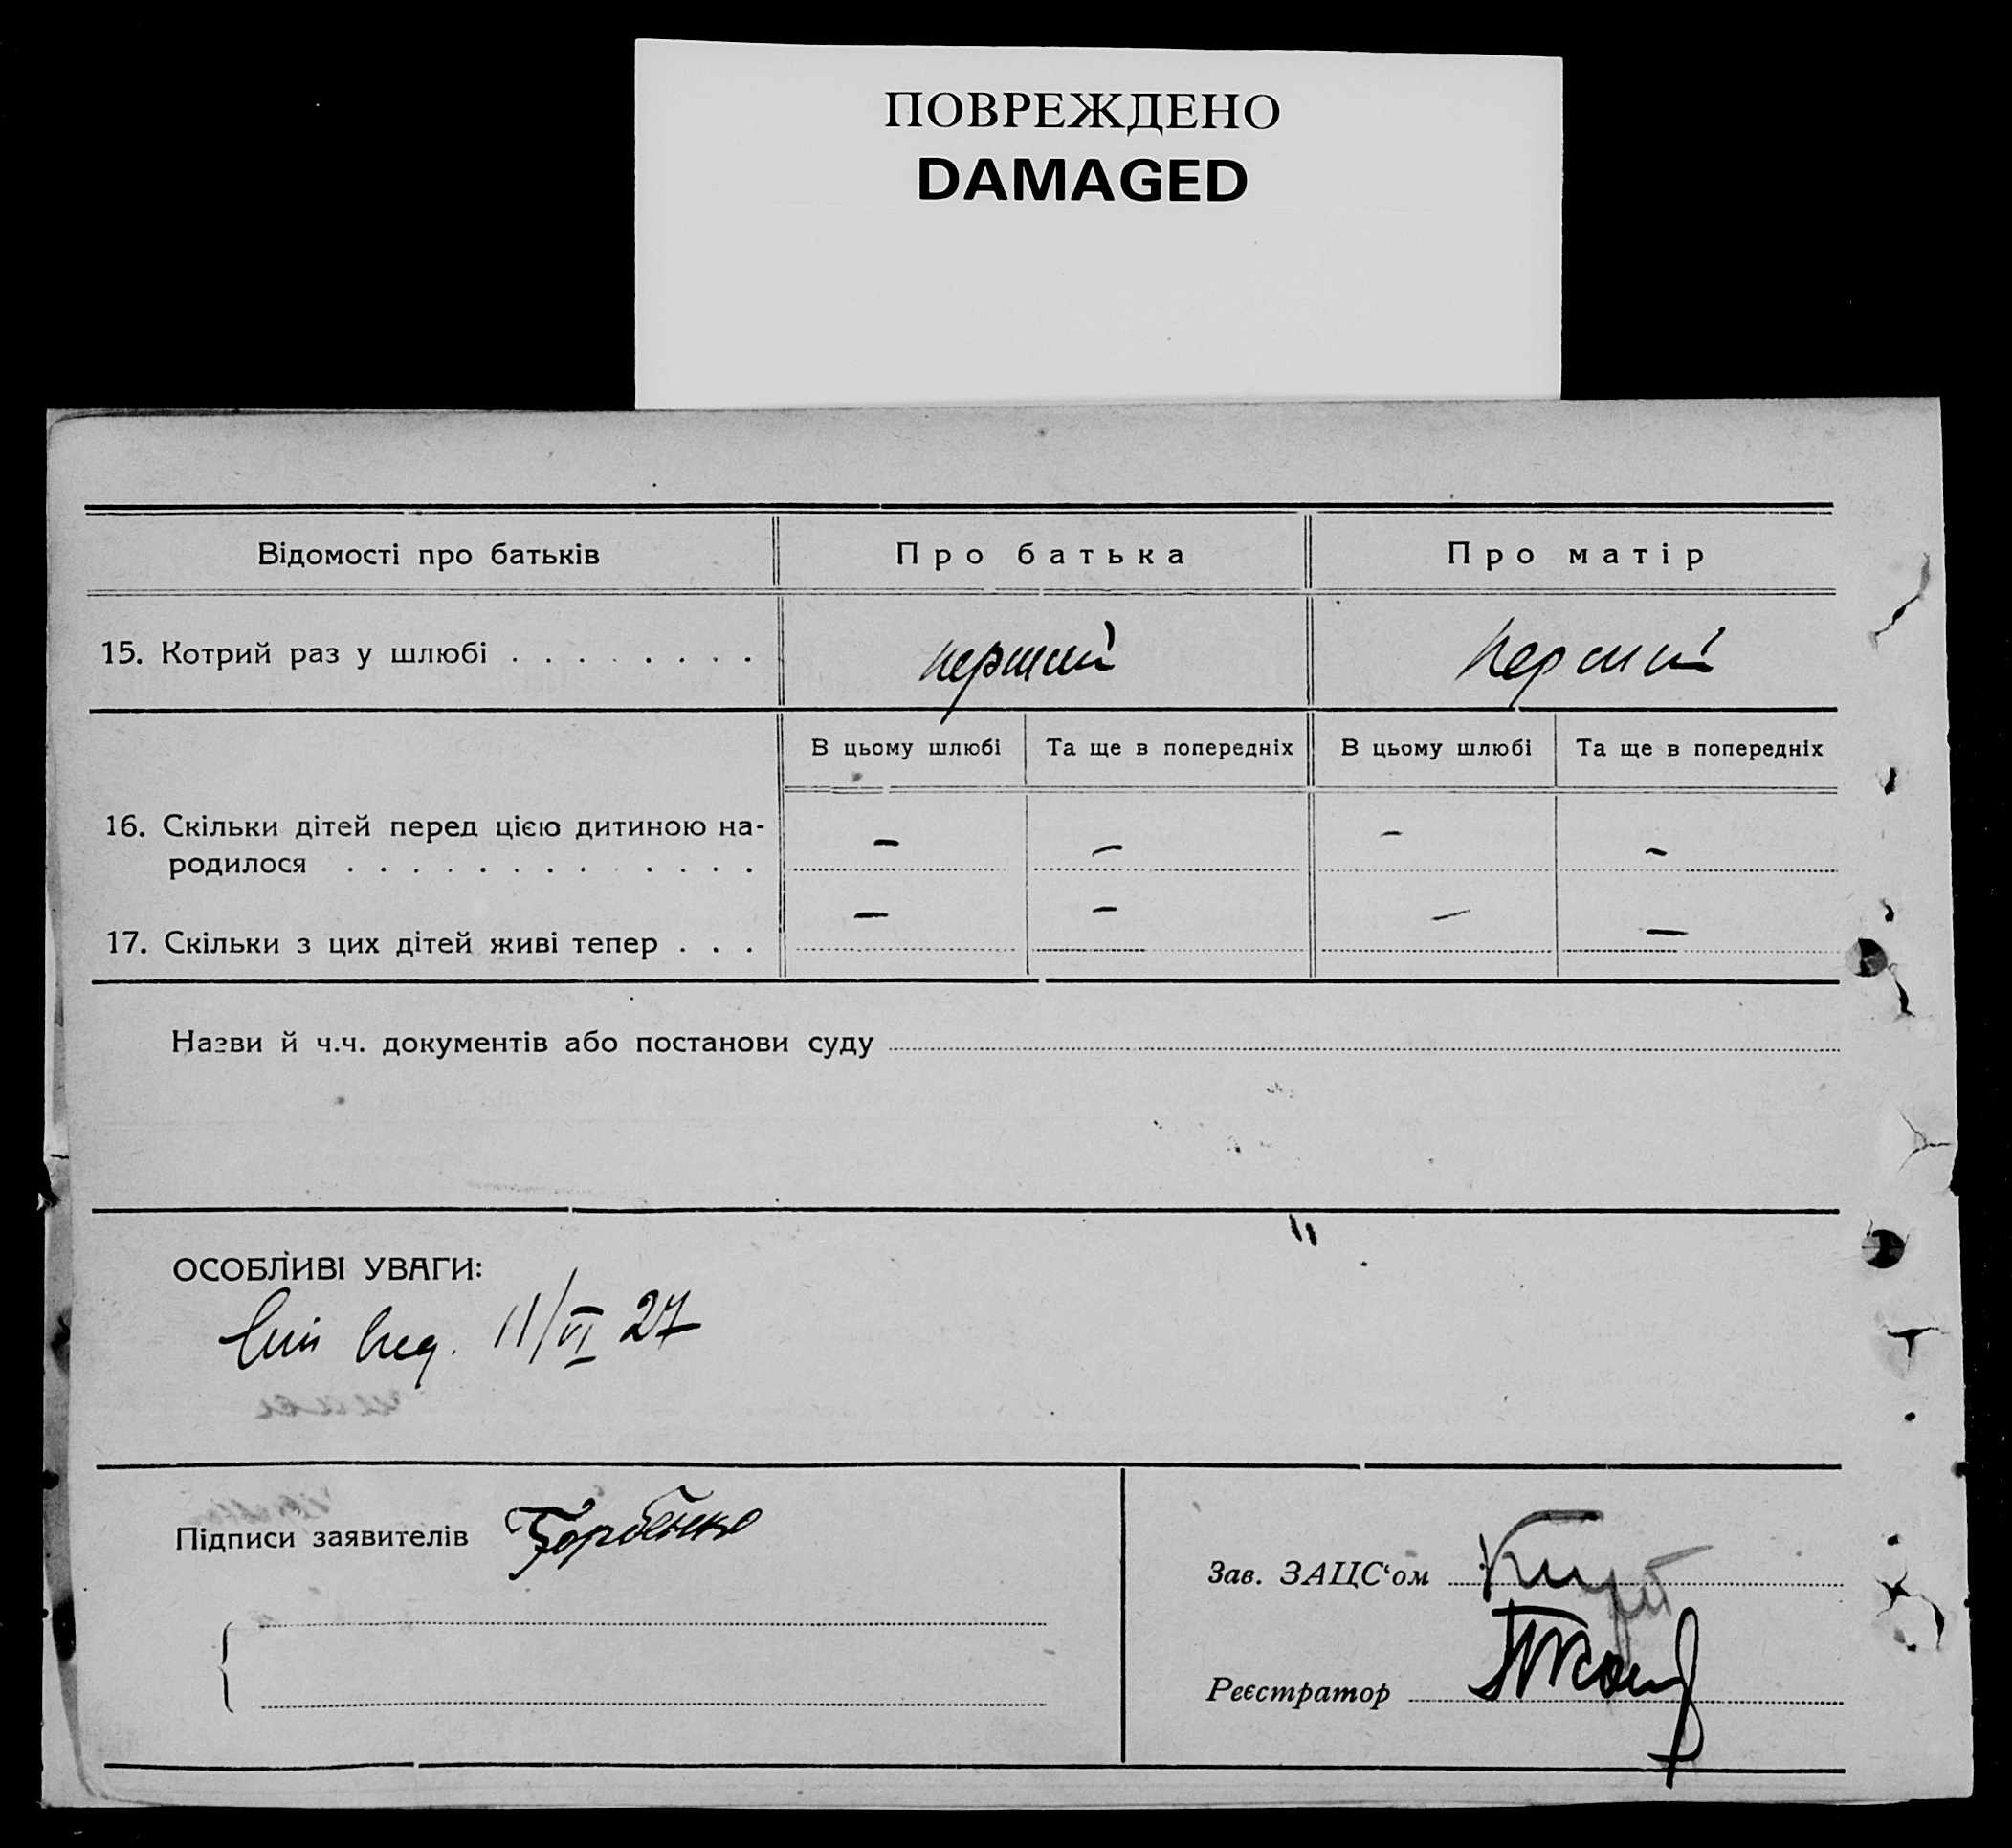 ПОВРЕЖДЕНО
DAMAGED
Відомості про батьків Про батька Про матір
15. Котрий раз у шлюбі . . . . . . . . перший перший
В цьому шлюбі Та ще в попередніх В цьому шлюбі Та ще в попередніх
16. Скільки дітей перед цією дитиною на-
родилося . . . . . . . . . . . . . — — — —
17. Скільки з цих дітей живі тепер . . . — — — —
Назви й ч.ч. документів або постанови суду
ОСОБЛИВІ УВАГИ:
11/VI 27
Підписи заявителів Горбенко
Зав. ЗАЦС'ом
Реєстратор